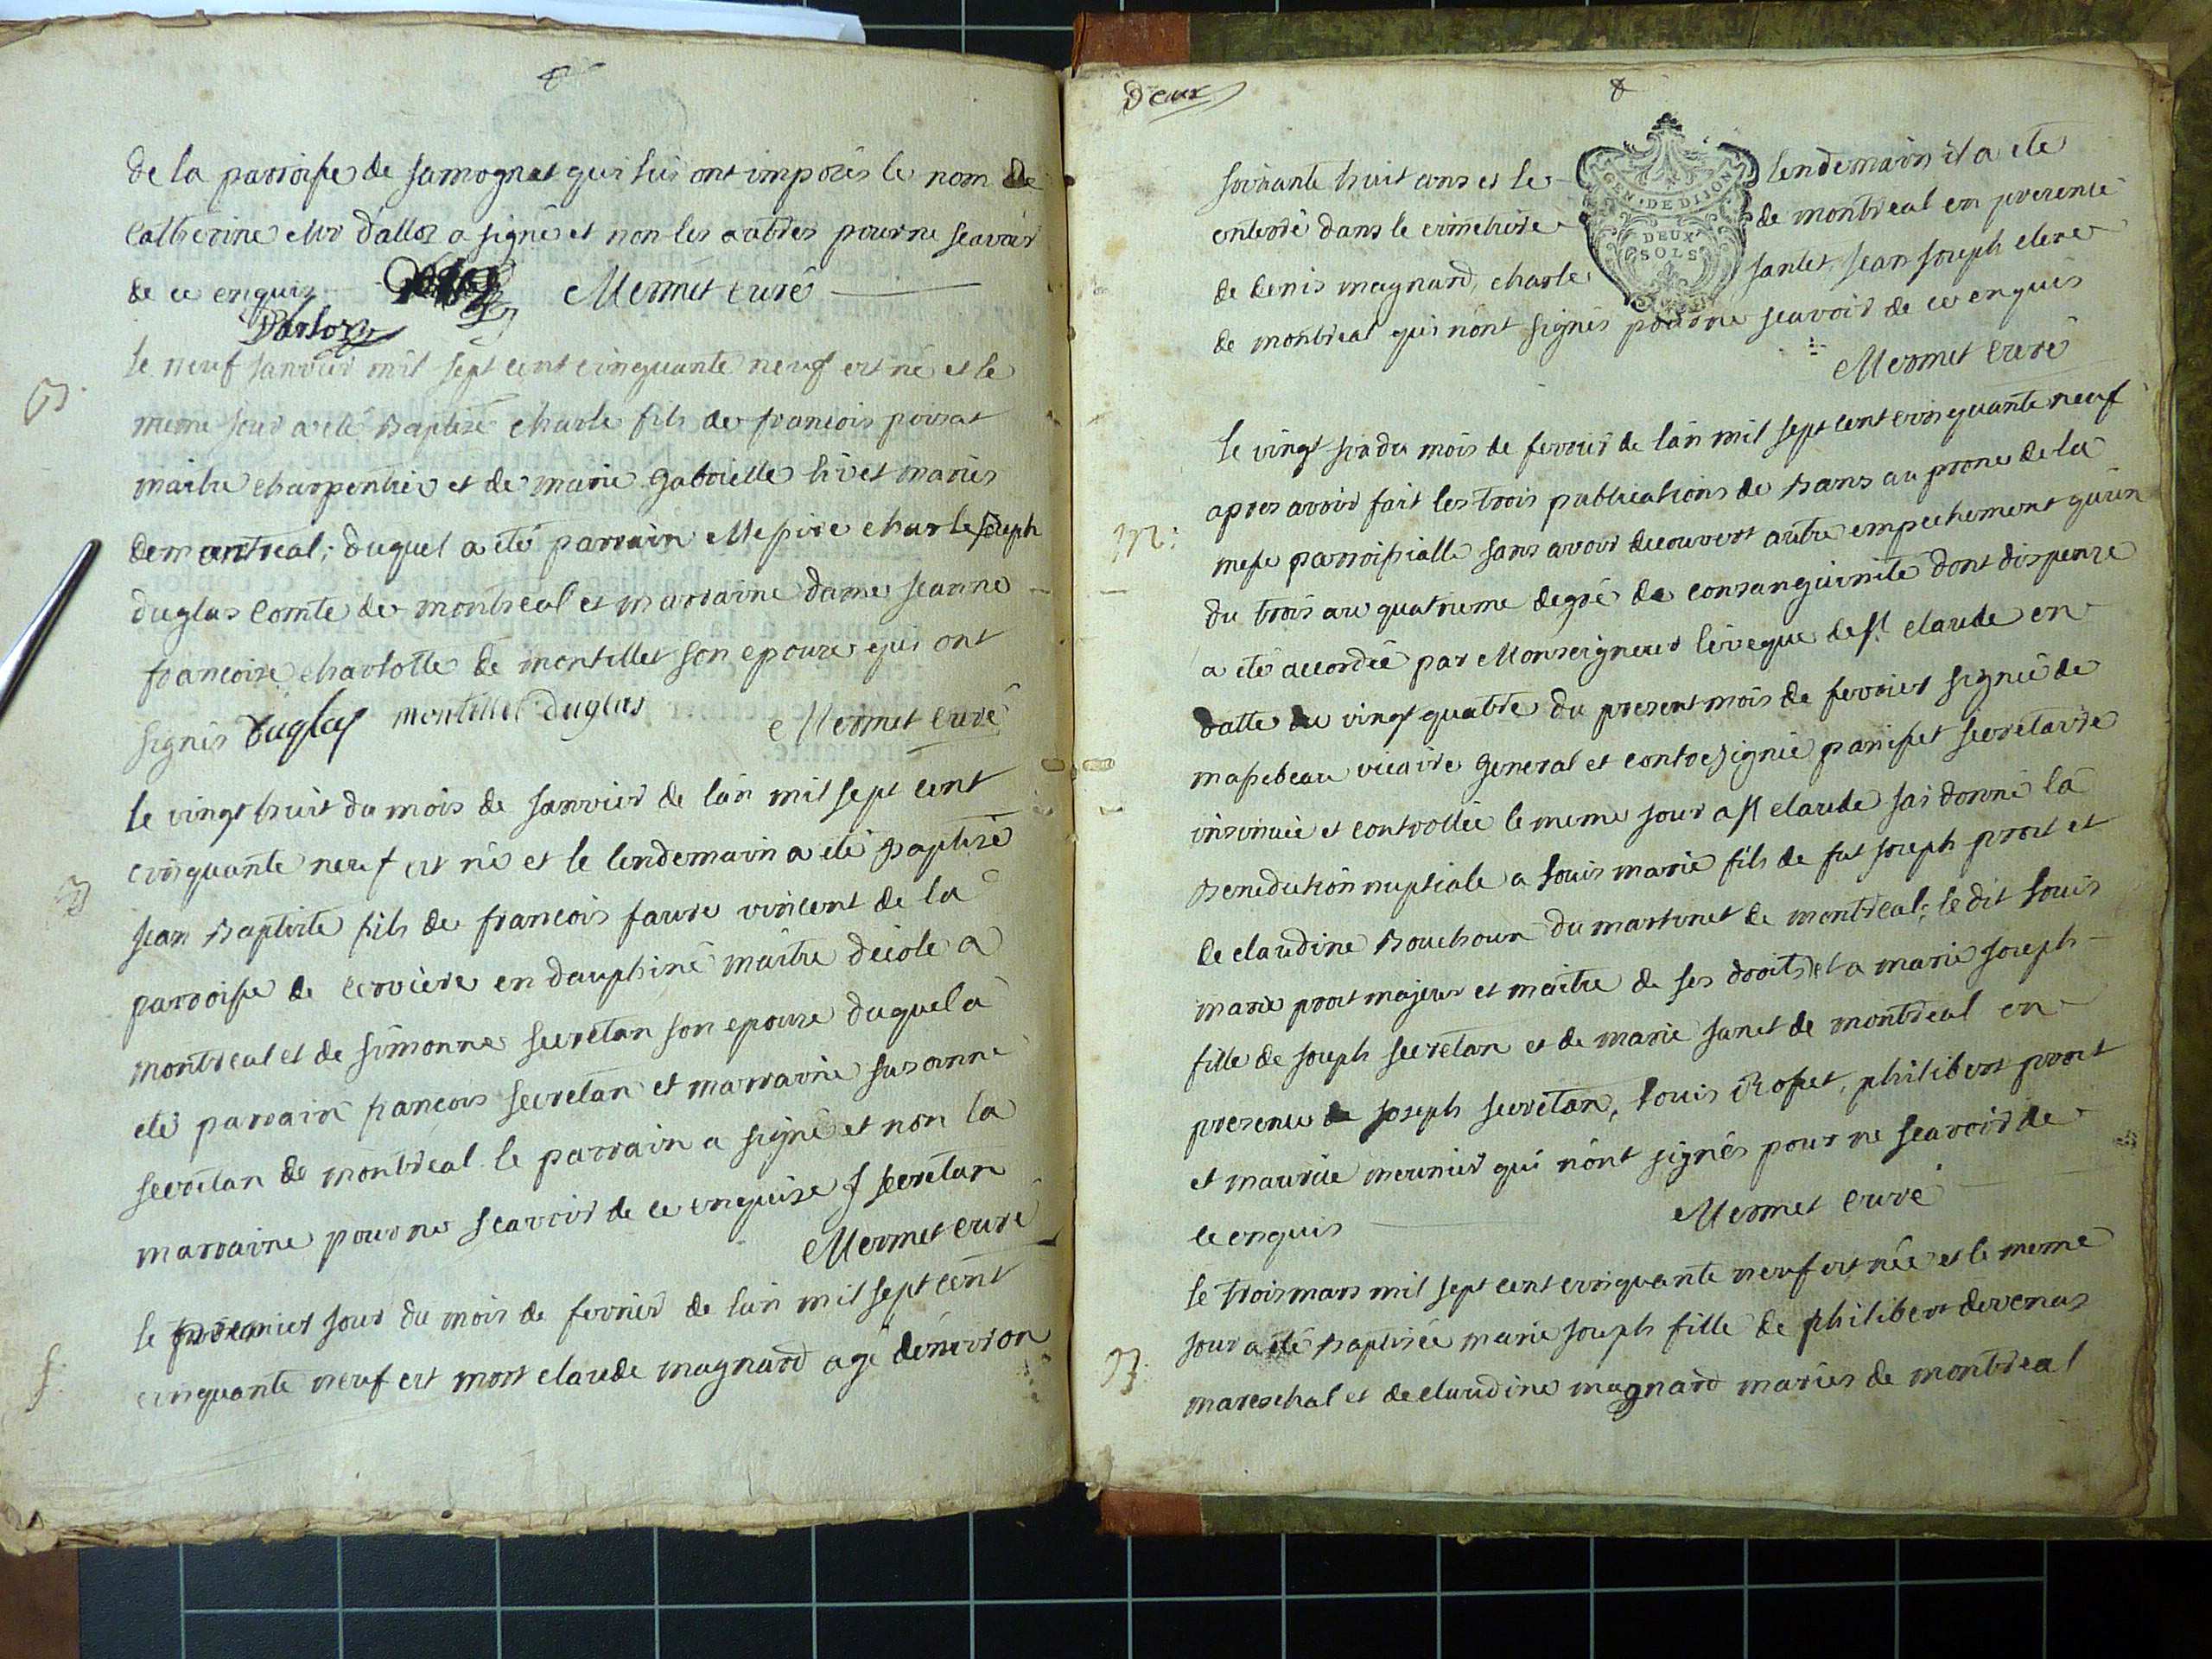 de la parroisse de samognat qui lui ont imposés le nom de
Catherine Mr dalloz a signé et non les autres pour ne scavoir
de ce enquis Mermet curé
Darloz
B.
le neuf janvier mil sept cent cinquante neuf est né et le
meme jour a été baptisé charle fils de francois poisat
maitre charpentier et de marie gabrielle livet mariés
de montreal; duquel a été parrain Messire charle joseph
duglas Comte de montreal et marraine dame jeanne
francoise charlotte de montillet son epouze qui ont
signés Duglas montillet duglas Mermet curé
B
le vingt huit du mois de janvier de lán mil sept cent
cinquante neuf est né et le lendemain a été baptisé
jean baptiste fils de francois faure vincent de la
parroisse de cerviere en dauphiné maitre decole a
montreal et de simonne secretan son epouze duquel a
été parrain francois secretan et marraine susanne
secretan de montreal le parrain a signé et non la
marraine pour ne scavoir de ce enquise f secretan
Mermet curé
f.
le premier jour du mois de fevrier de lán mil sept cent
cinquante neuf est mort claude magnard agé dénviron
Deux
GEN. DE DIJON
DEUX
SOLS
soixante huit ans et le lendemain il a été
enterré dans le cimetiere de montreal en presence
de denis magnard, charle jantet jean joseph clerc
de montreal qui nónt signés pour ne scavoir de ce enquis
Mermet curé
M:
le vingt six du mois de fevrier de lán mil sept cent cinquante neuf
apres avoir fait les trois publications de bans au prone de la
messe parroissialle sans avoir decouvert autre empechement quún
du trois au quatrieme degré de consanguinité dont dispenze
a été accordée par Monseigneur lévéque de st claude en
datte du vingt quatre du present mois de fevrier signée de
massebeau vicaire general et contresignée panisset secretaire
insinuée et controllée le meme jour a st claude jai donné la
benediction nuptiale a louis marie fils de fut joseph prost et
de claudine bouchoux du martinet de montreal; le dit louis
marie prost majeur et maitre de ses droits, et a marie joseph
fille de joseph secretan et de marie janet de montreal en
presence de joseph secretan, louis Rosset, philibert prost
et maurice meunier qui nónt signés pour ne scavoir de
ce enquis Mermet curé
B.
le trois mars mil sept cent cinquante neuf est née et le meme
jour a été baptisée marie joseph fille de philibert devenas
mareschal et de claudine magnard mariés de montreal